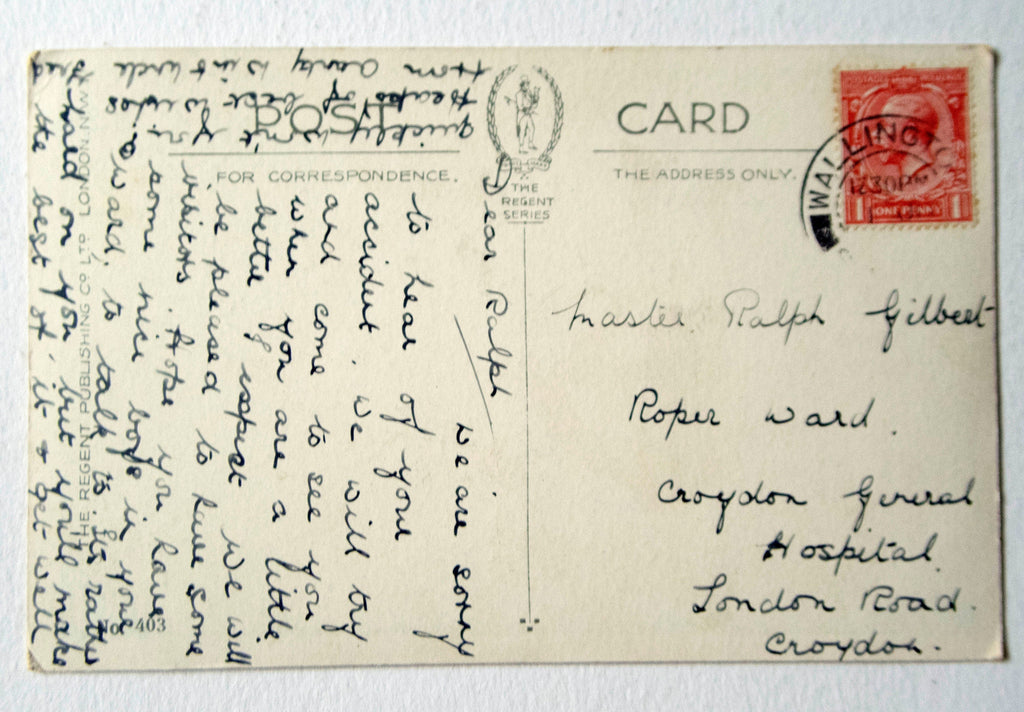 POST CARD
FOR CORRESPONDENCE.
THE ADDRESS ONLY.
THE
REGENT
SERIES
THE REGENT PUBLISHING CO LTD LONDON. N.W.
No 403
WALLINGTO
POSTAGE REVENUE
1 ONE PENNY 1
Dear Ralph
we are sorry
to hear of your
accident. We will try
and come to see you
when you are a little
better I expect we will
be pleased to have some
visitors. Hope you have
some nice boys in your
ward, to talk to. Its rather
hard on you but you'll make
the best of it & get well
quickly won't you
Heaps of best wishes
from Aunty Win & Uncle
Fred
Master Ralph Gilbert
Roper Ward.
Croydon General
Hospital.
London Road.
Croydon.